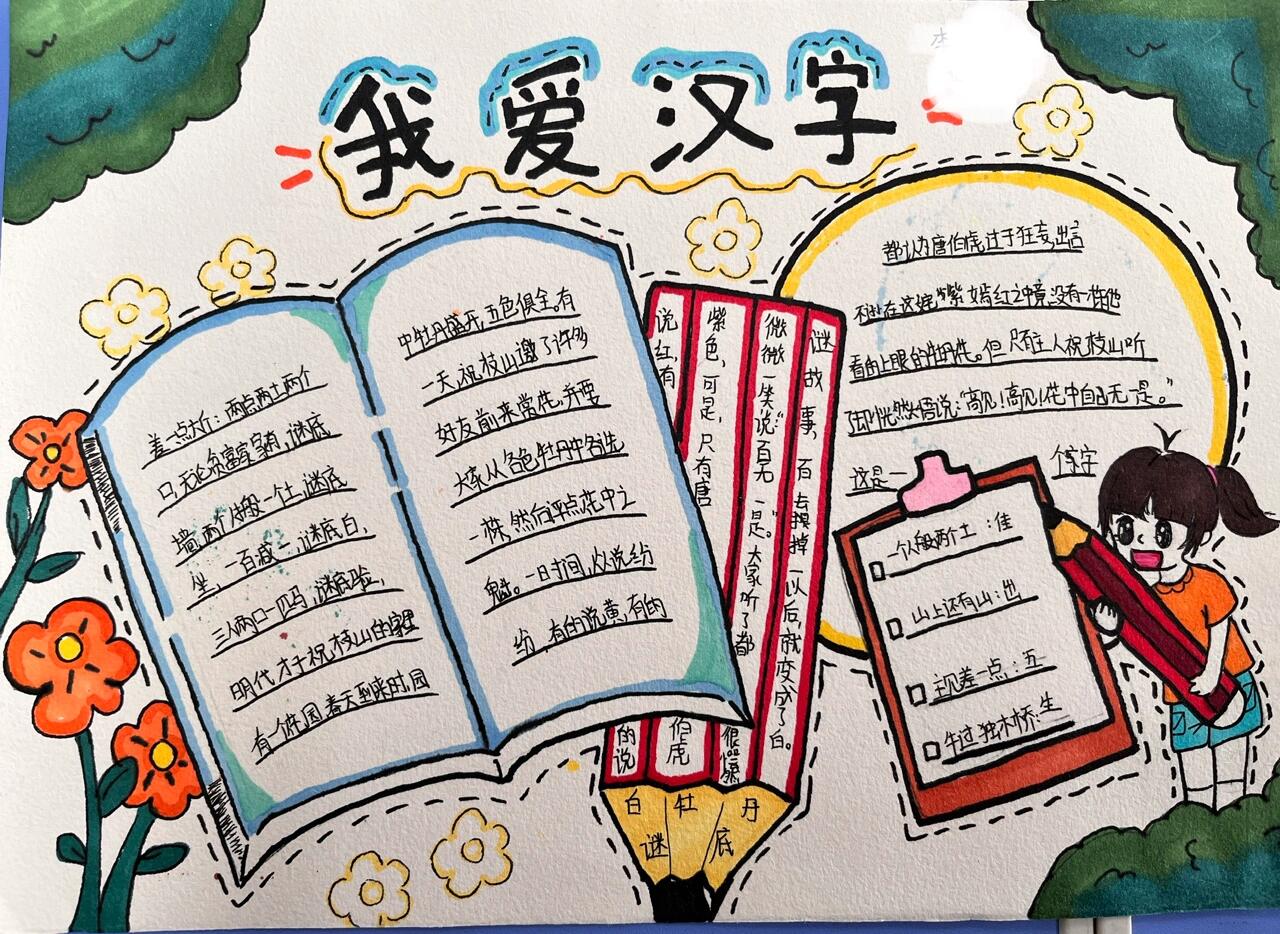 我爱汉字
差一点六斤：两点两土两个
口，无论贫富家家有，谜底
墙，两个人搬一土，谜底
坐，一百减一，谜底白，
三人两口一匹马，谜底验，
明代才子祝枝山的家里
有一个花园春天到来时，园
中牡丹盛开，五色俱全。有
一天，祝枝山邀了许多
好友前来赏花，并要
大家从各色牡丹中各选
一株，然后评点花中之
魁。一时间，众说纷
纷，有的说黄，有的
说红，有的说
紫色，可是，只有唐伯虎
微微一笑说：“百无一是。”大家听了都很
谜故事，百去掉一以后，就变成了白。
白牡丹
谜底
都认为唐伯虎过于狂妄，出言
在这姹紫嫣红之中竟没有一株他
看的上眼的牡丹花。但只有主人祝枝山听
恍然大悟说：“高见！高见！花中自白无一是。”
这是一个字
一个人搬两个土：佳
山上还有山：出
王现差一点：五
牛过独木桥：生